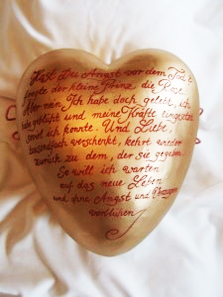 Hast Du Angst vor dem Tod?
fragte der kleine Prinz die Rose.
Aber nein. Ich habe doch gelebt, ich
habe geblüht und meine Kräfte eingesetzt
soviel ich konnte. Und Liebe,
tausendfach verschenkt, kehrt wieder
zurück zu dem, der sie gegeben.
So will ich warten
auf das neue Leben
und ohne Angst und Verzagen
verblühen.